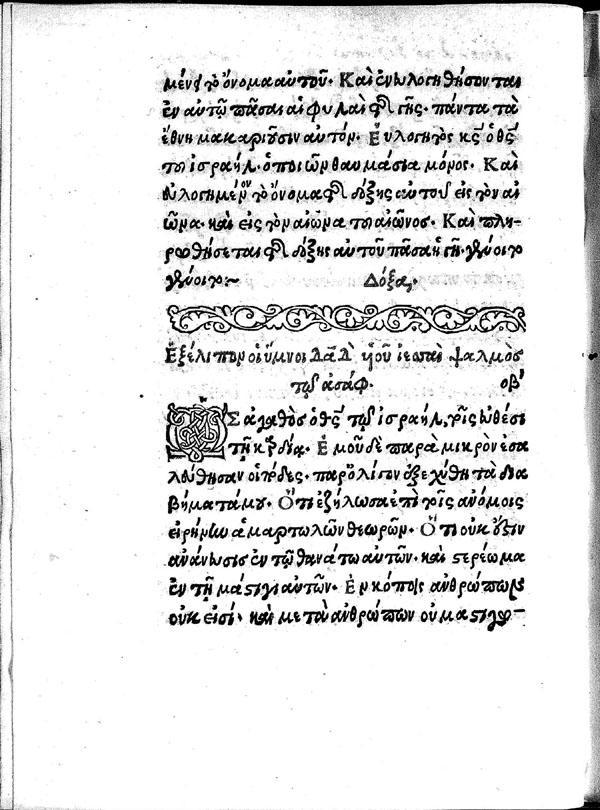 μένει τὸ ὄνομα αὐτοῦ. Καὶ ἐνευλογηθήσονται
ἐν αὐτῷ πᾶσαι αἱ φυλαὶ τῆς γῆς. πάντα τὰ
ἔθνη μακαριοῦσιν αὐτόν. Εὐλογητὸς κς ὁ θς
τοῦ ισραήλ. ὁ ποιῶν θαυμάσια μόνος. Καὶ
εὐλογημένον τὸ ὄνομα τῆς δόξης αὐτοῦ εἰς τὸν αἰ
ῶνα. καὶ εἰς τὸν αἰῶνα τοῦ αἰῶνος. Καὶ πλη
ρωθήσεται τῆς δόξης αὐτοῦ πᾶσα ἡ γῆ. γένοιτο
γένοιτο ~ Δόξα,
Ἐξέλιπον οἱ ὕμνοι Δᾱδ̄ τοῦ ιεσσαὶ ψαλμὸς
τῷ ἀσάφ. οβ'
Ὡς ἀγαθὸς ὁ θς τῷ ισραήλ, τοῖς εὐθέσι
τῇ καρδίᾳ. Ἐμοῦ δὲ παρὰ μικρὸν ἐσα
λεύθησαν οἱ πόδες. παρ' ὀλίγον ἐξεχύθη τὰ δια
βήματά μου. Ὅτι ἐζήλωσα ἐπὶ τοῖς ἀνόμοις
εἰρήνην ἁμαρτωλῶν θεωρῶν. Ὅτι οὐκ ἔστιν
ἀνάνευσις ἐν τῷ θανάτῳ αὐτῶν. καὶ στερέωμα
ἐν τῇ μάστιγι αὐτῶν. Ἐν κόποις ἀνθρώπων
οὐκ εἰσί. καὶ μετὰ ἀνθρώπων οὐ μαστιγω-